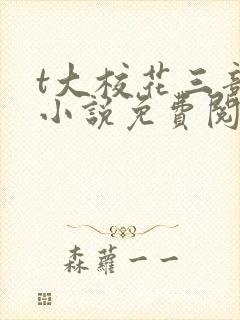 t大校花三部
小说免費閱
森蘿一一